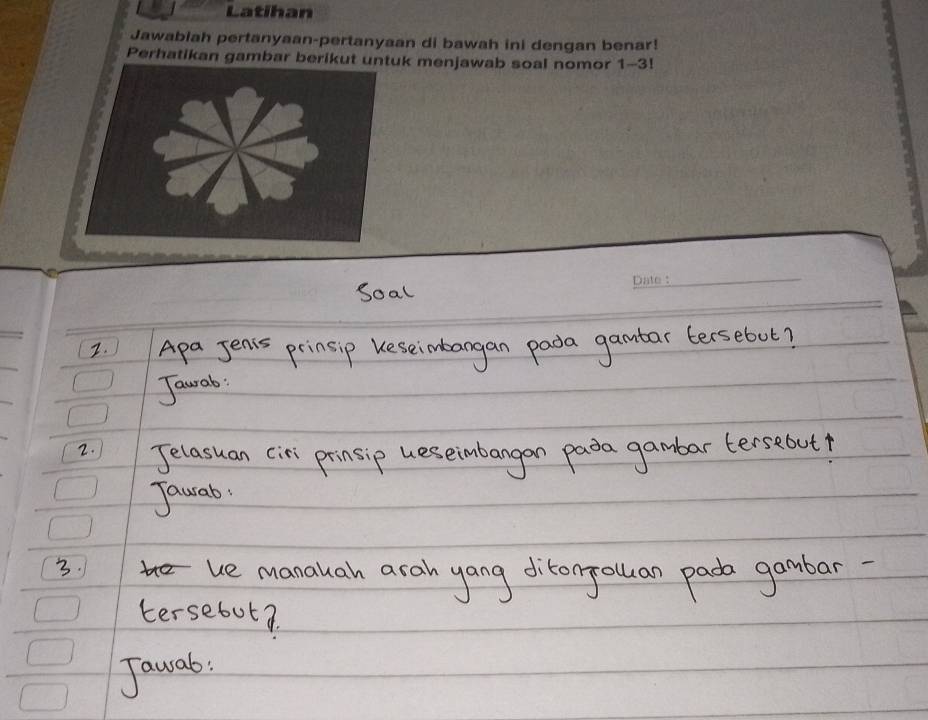 Latihan
Jawablah pertanyaan-pertanyaan di bawah ini dengan benar!
Perhatikan gambar berikut untuk menjawab soal nomor 1-3!
Soal
Date :
1. Apa Jenis prinsip keseimbangan pada gambar tersebut?
Jawab:
2. Jelaskan ciri prinsip keseimbangan pada gambar tersebut!
Jawab:
3. ke manakah arah yang ditonjolkan pada gambar -
tersebut?
Jawab: